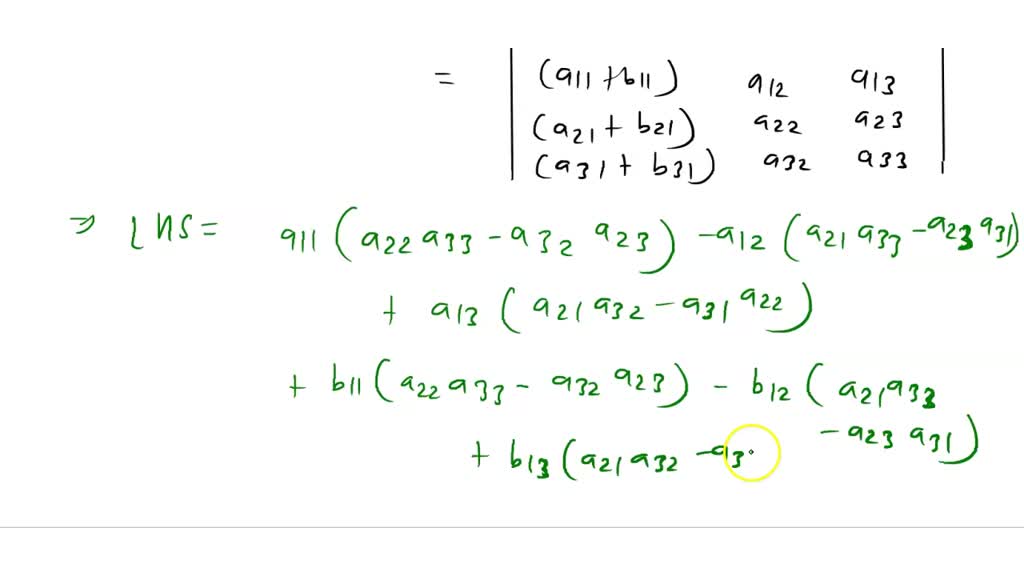 = | (a11 + b11) a12 a13 |
| (a21 + b21) a22 a23 |
| (a31 + b31) a32 a33 |
⇒ LHS = a11 (a22 a33 - a32 a23) - a12 (a21 a33 - a23 a31)
+ a13 (a21 a32 - a31 a22)
+ b11 (a22 a33 - a32 a23) - b12 (a21 a33
- a23 a31)
+ b13 (a21 a32 - a3